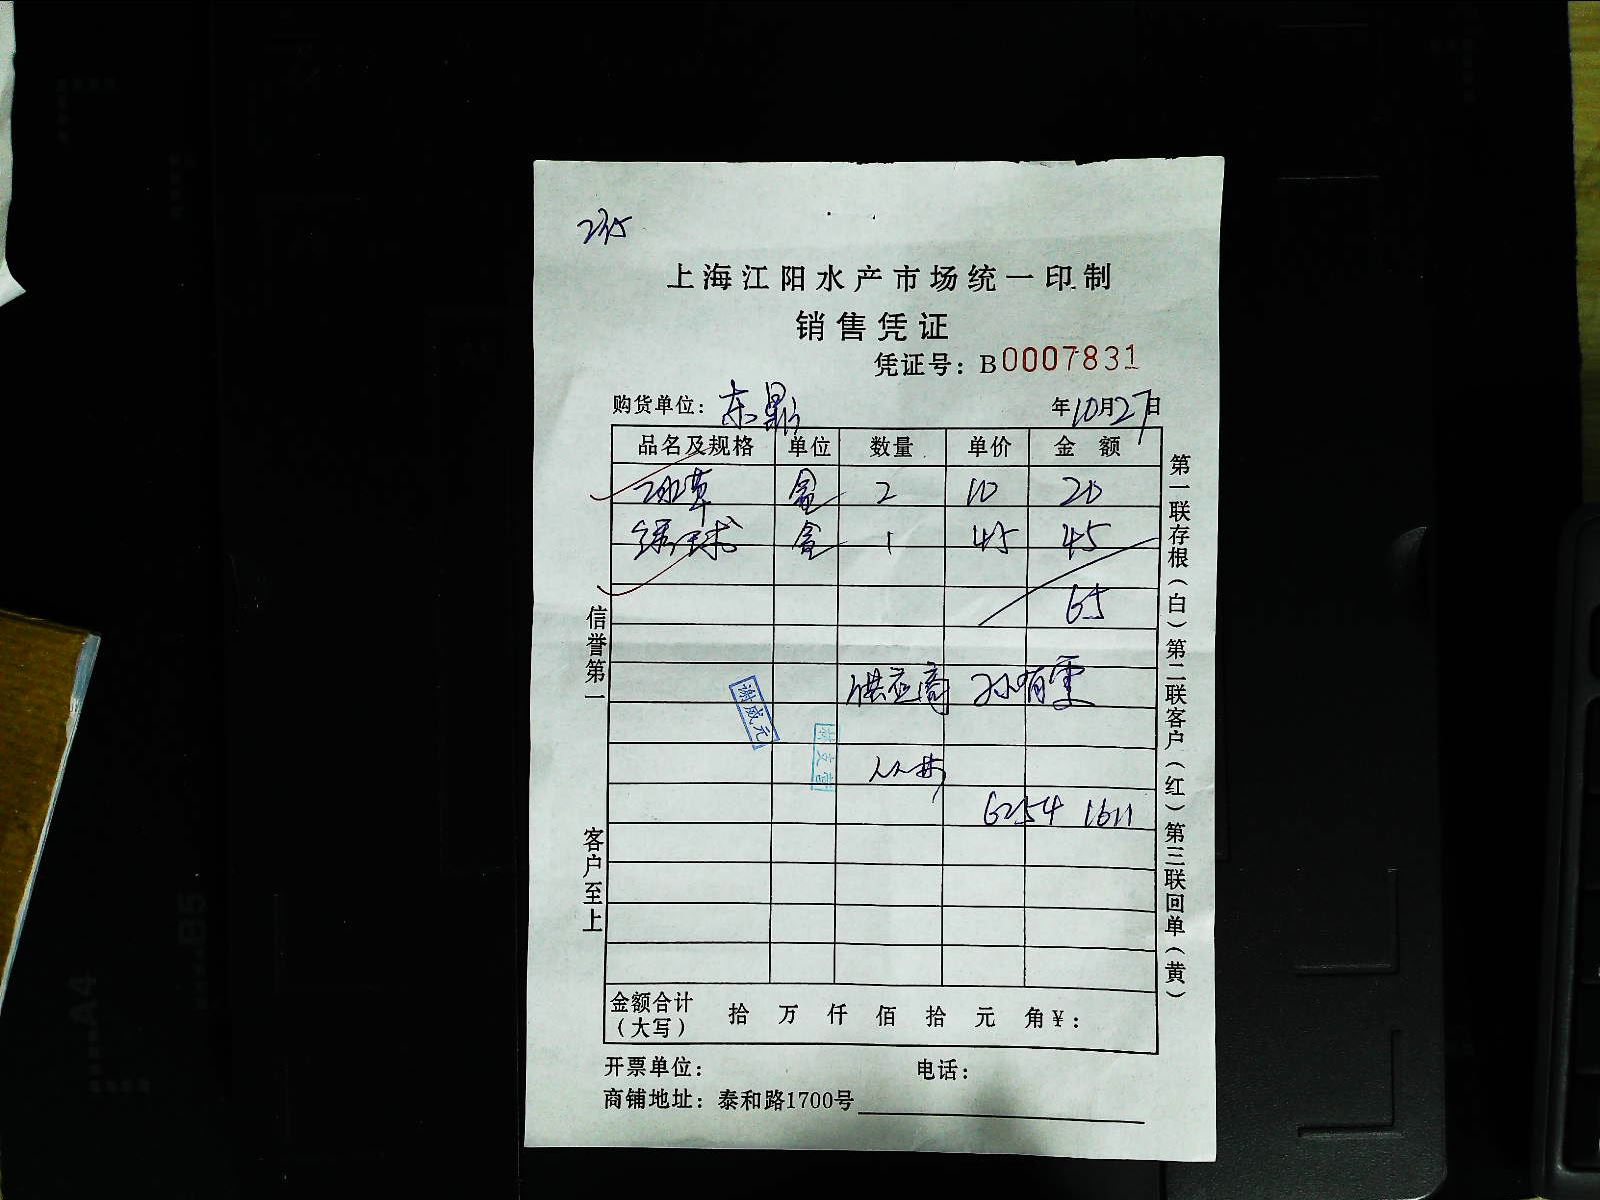 235
上海江阳水产市场统一印制
销售凭证
凭证号：B0007831
购货单位：东鼎 年10月27日
品名及规格 单位 数量 单价 金额
冰草 盒 2 10 20
绣球 盒 1 45 45
65
供应商 孙有雯
谢成元
6254 1611
金额合计（大写） 拾 万 仟 佰 拾 元 角￥：
开票单位： 电话：
商铺地址：泰和路1700号
信誉第一 客户至上
第一联存根（白）第二联客户（红）第三联回单（黄）